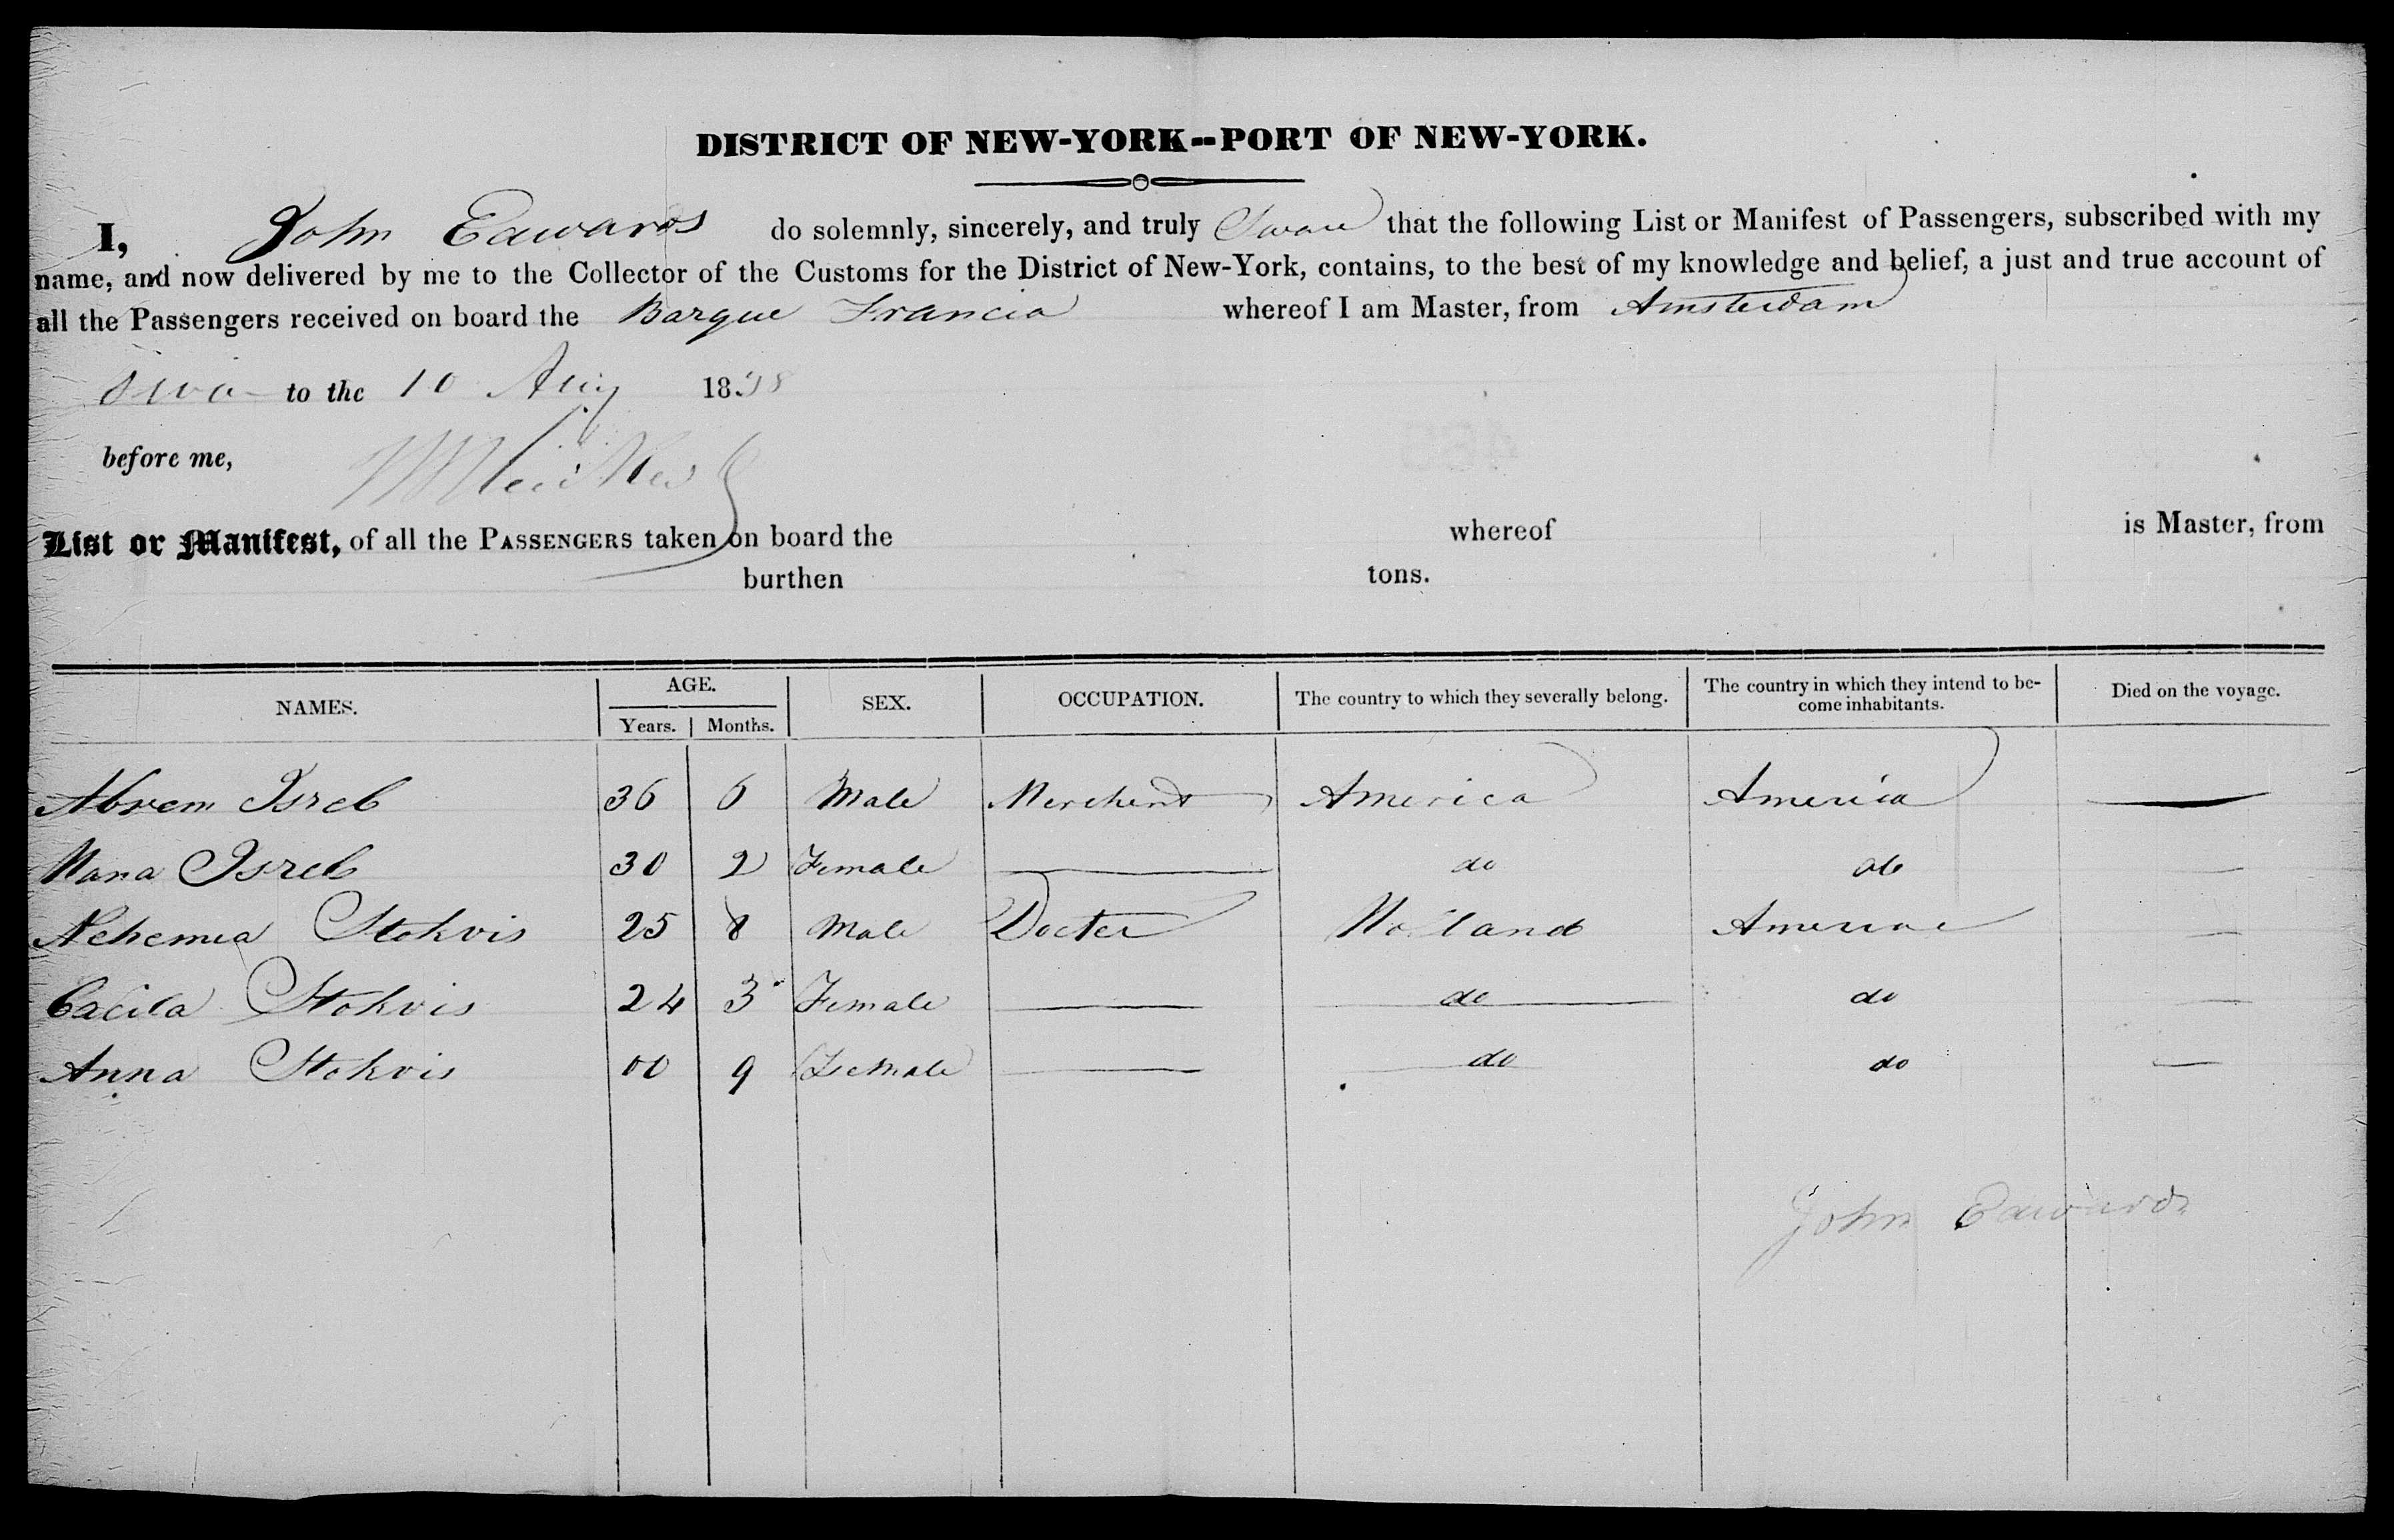 DISTRICT OF NEW-YORK--PORT OF NEW-YORK.
I, John Edwards do solemnly, sincerely, and truly Swear that the following List or Manifest of Passengers, subscribed with my
name, and now delivered by me to the Collector of the Customs for the District of New-York, contains, to the best of my knowledge and belief, a just and true account of
all the Passengers received on board the Barque Francia whereof I am Master, from Amsterdam
to the 10 Aug 1838
before me,
List or Manifest, of all the PASSENGERS taken on board the whereof is Master, from
burthen tons.
NAMES. AGE. SEX. OCCUPATION. The country to which they severally belong. The country in which they intend to be-
come inhabitants. Died on the voyage.
Years. Months.
Abrem Isreb 36 6 Male Merchent America America —
Nana Isreb 30 2 Female — do do —
Nehemia Stokvis 25 8 Male Docter Holland America —
Cacila Stokvis 24 3 Female — do do —
Anna Stokvis 00 9 Female — do do —
John Edwards